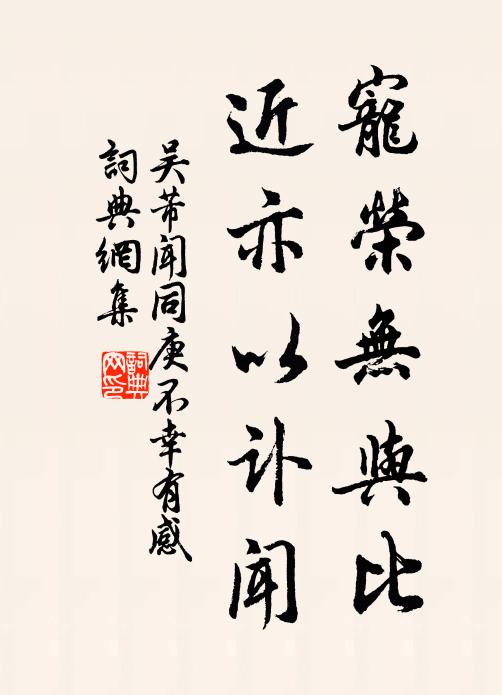 寵榮無與比
近亦以訃聞
吴芾聞同庚不幸有感
詞典網集
詞典網印